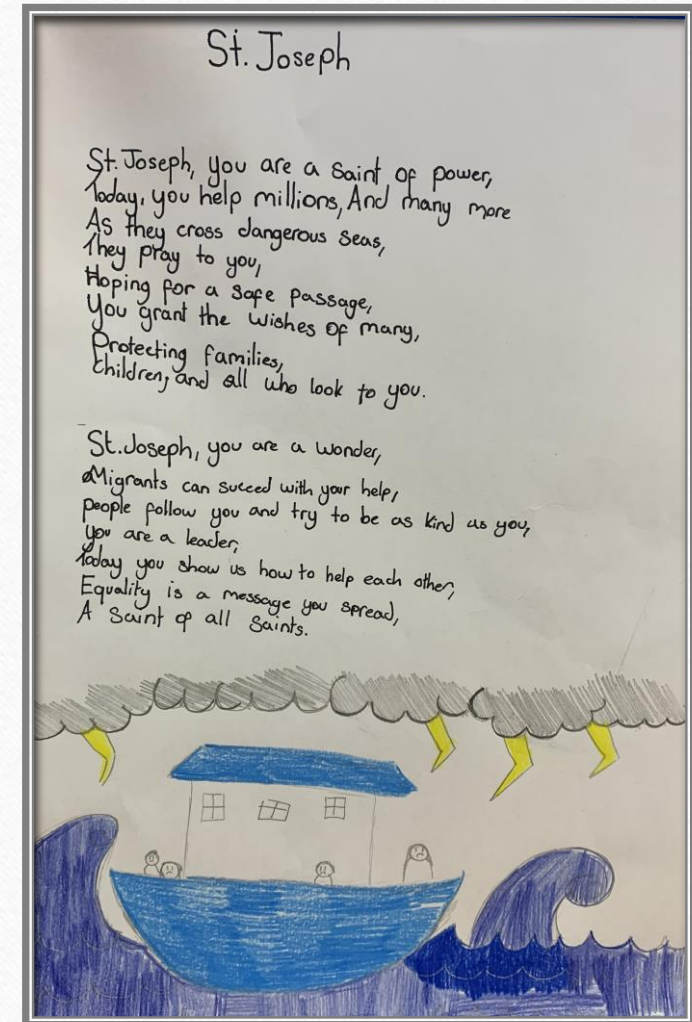 St. Joseph
St. Joseph, you are a saint of power,
Today, you help millions, And many more
As they cross dangerous seas,
They pray to you,
Hoping for a safe passage,
You grant the wishes of many,
Protecting families,
Children, and all who look to you.
St. Joseph, you are a wonder,
Migrants can succeed with your help,
people follow you and try to be as kind as you,
you are a leader,
Today you show us how to help each other,
Equality is a message you spread,
A Saint of all Saints.